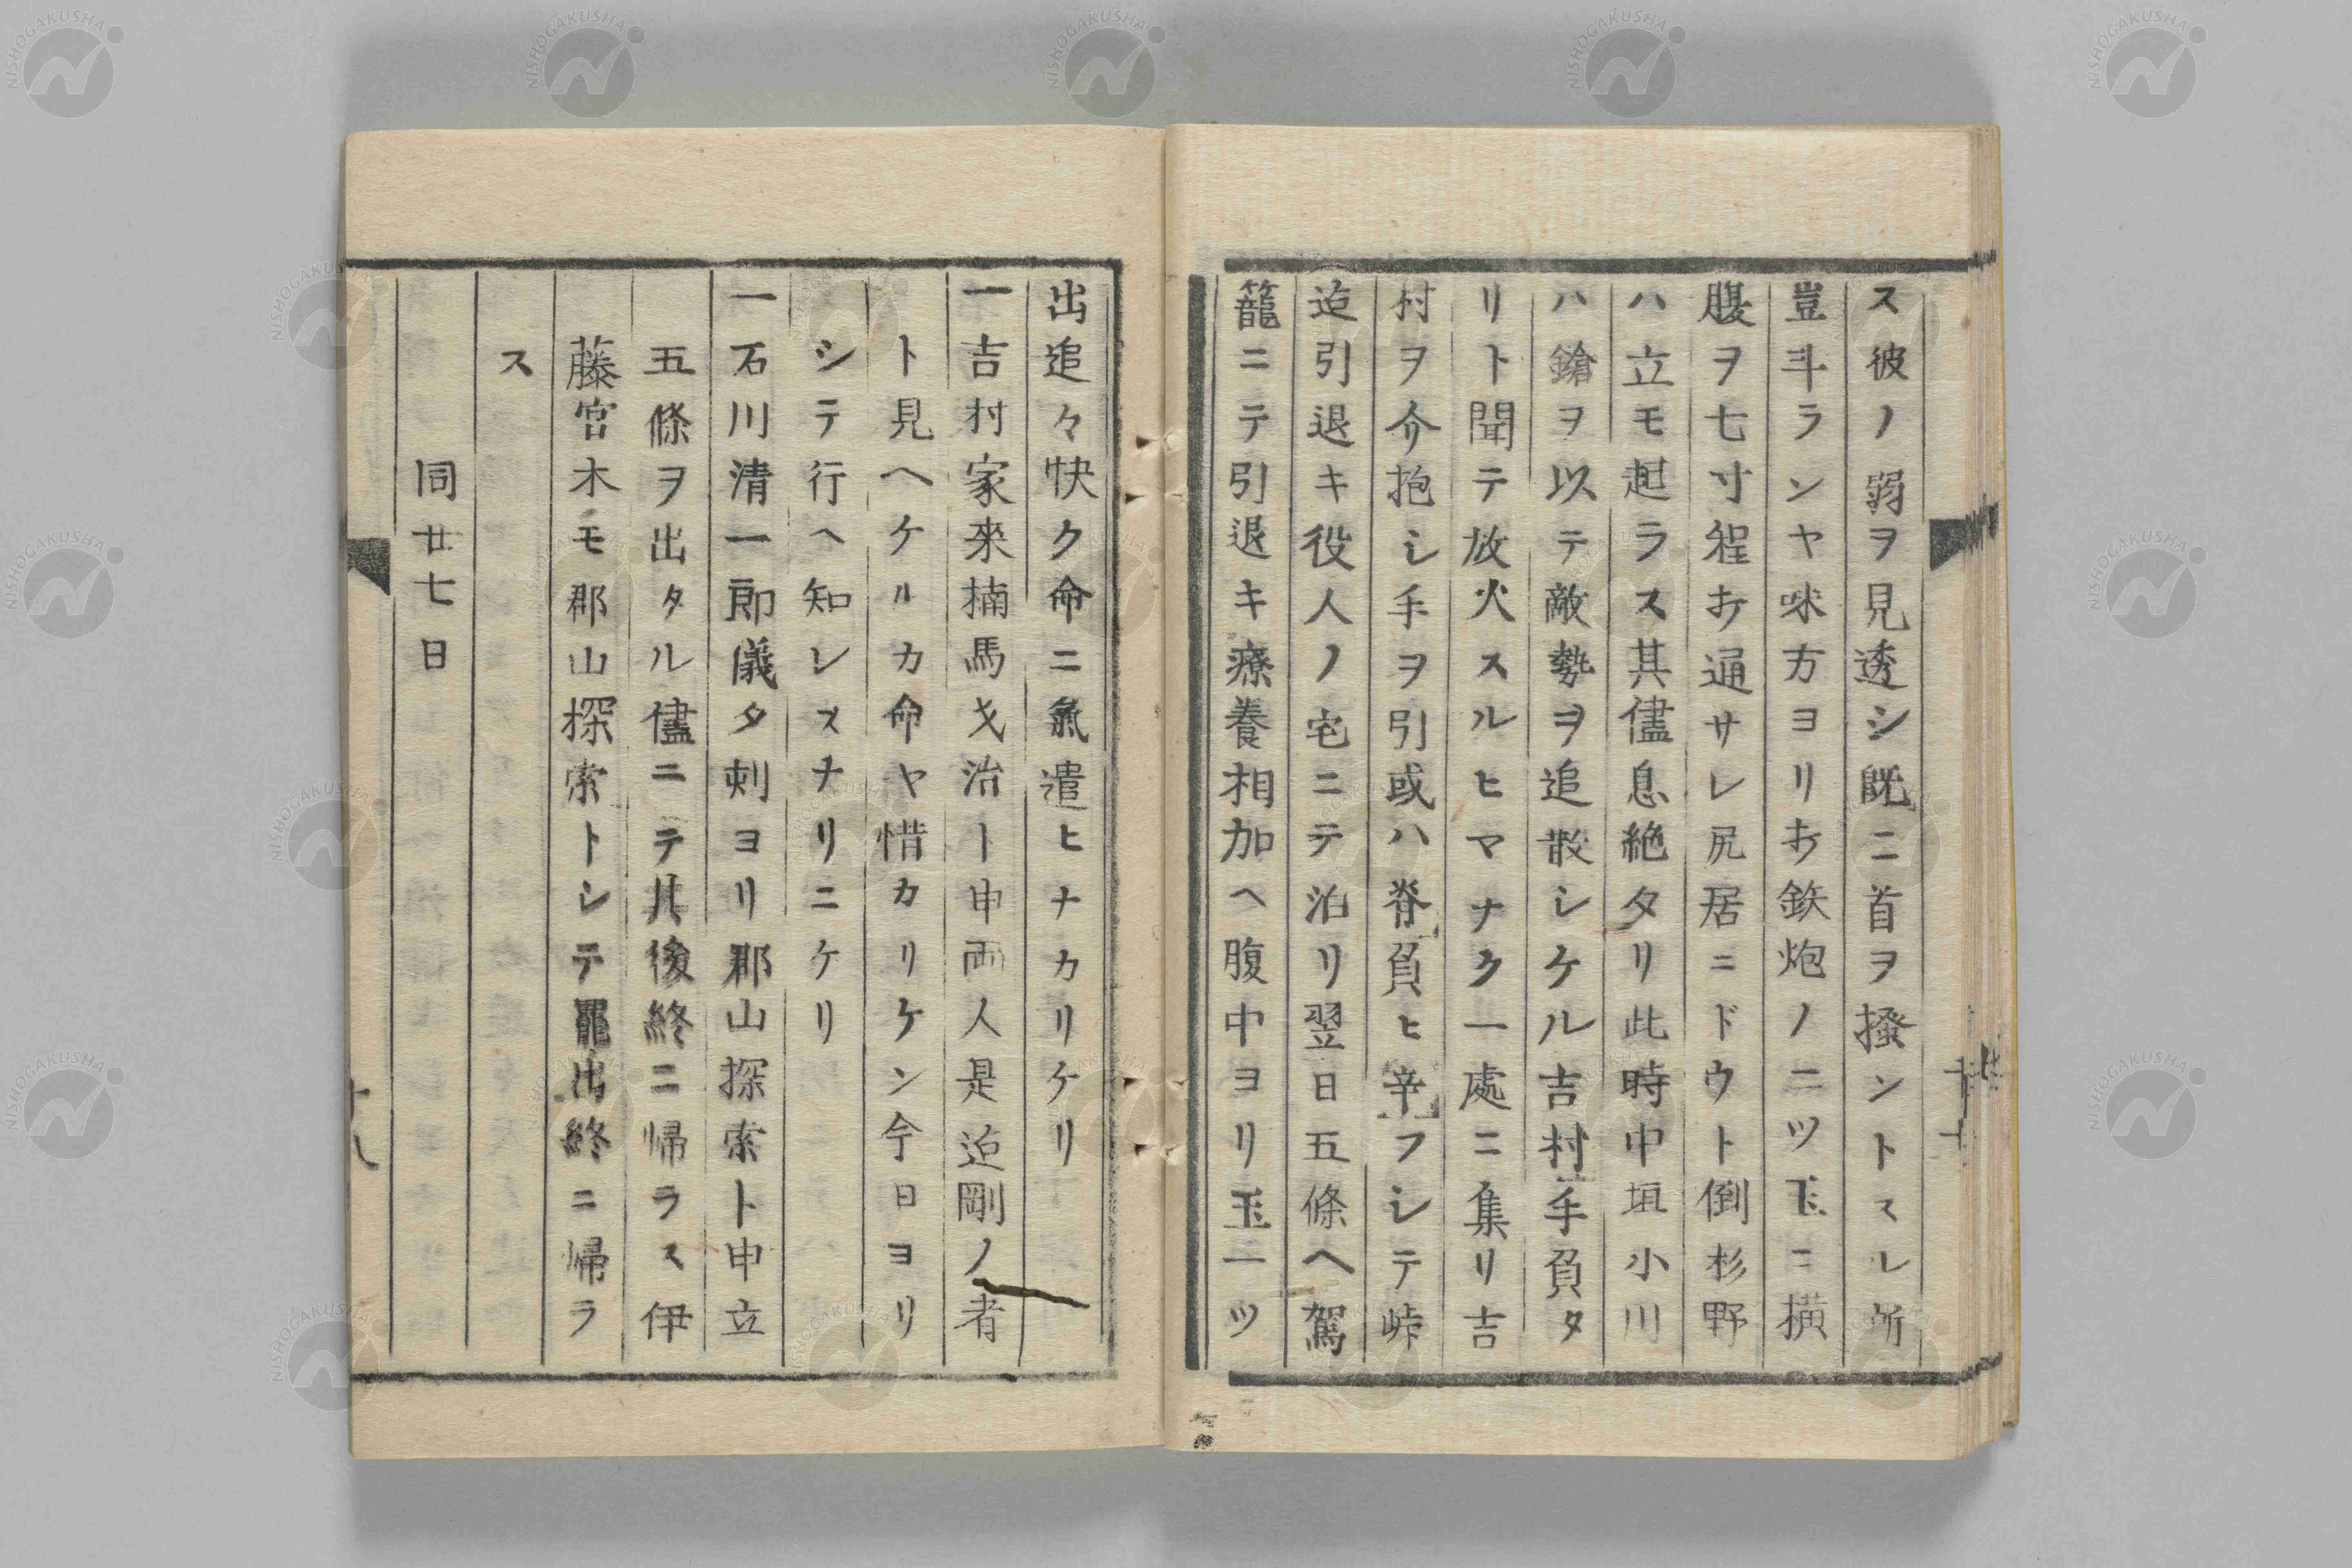 ス彼ノ弱ヲ見透シ既ニ首ヲ撥ントスル所
豈斗ランヤ味方ヨリ打鉄炮ノ二ツ玉ニ横
腹ヲ七寸程打通サレ尻居ニドウト倒杉野
ハ立モ起ラス其儘息絶タリ此時中垣小川
ハ鎗ヲ以テ敵勢ヲ追散シケル吉村手負タ
リト聞テ放火スルヒマナク一處ニ集リ吉
村ヲ介抱シ手ヲ引或ハ脊負ヒ辛フシテ峠
迄引退キ役人ノ宅ニテ泊リ翌日五條ヘ駕
籠ニテ引退キ療養相加ヘ腹中ヨリ玉一ツ
出追々快ク命ニ氣遣ヒナカリケリ
一吉村家來楠馬戈治ト申両人是迄剛ノ者
ト見ヘケルカ命ヤ惜カリケン今日ヨリ
シテ行ヘ知レスナリニケリ
一石川清一郎儀夕刺ヨリ郡山探索ト申立
五條ヲ出タル儘ニテ其後終ニ帰ラス伊
藤宮木モ郡山探索トシテ罷出終ニ帰ラ
ス
同廿七日
十八
NISHOGAKUSHA